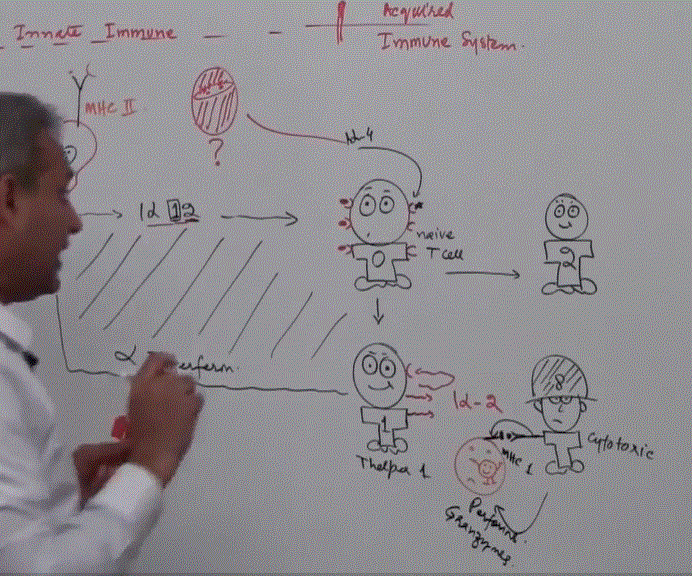 Innate Immune
Acquired
Immune System.
MHC II
?
Id-4
Id 12
naive
T cell
0
2
α
erferon.
8
1
Id-2
Cytotoxic
MHC 1
Thelper 1
Perforins
Granzymes.